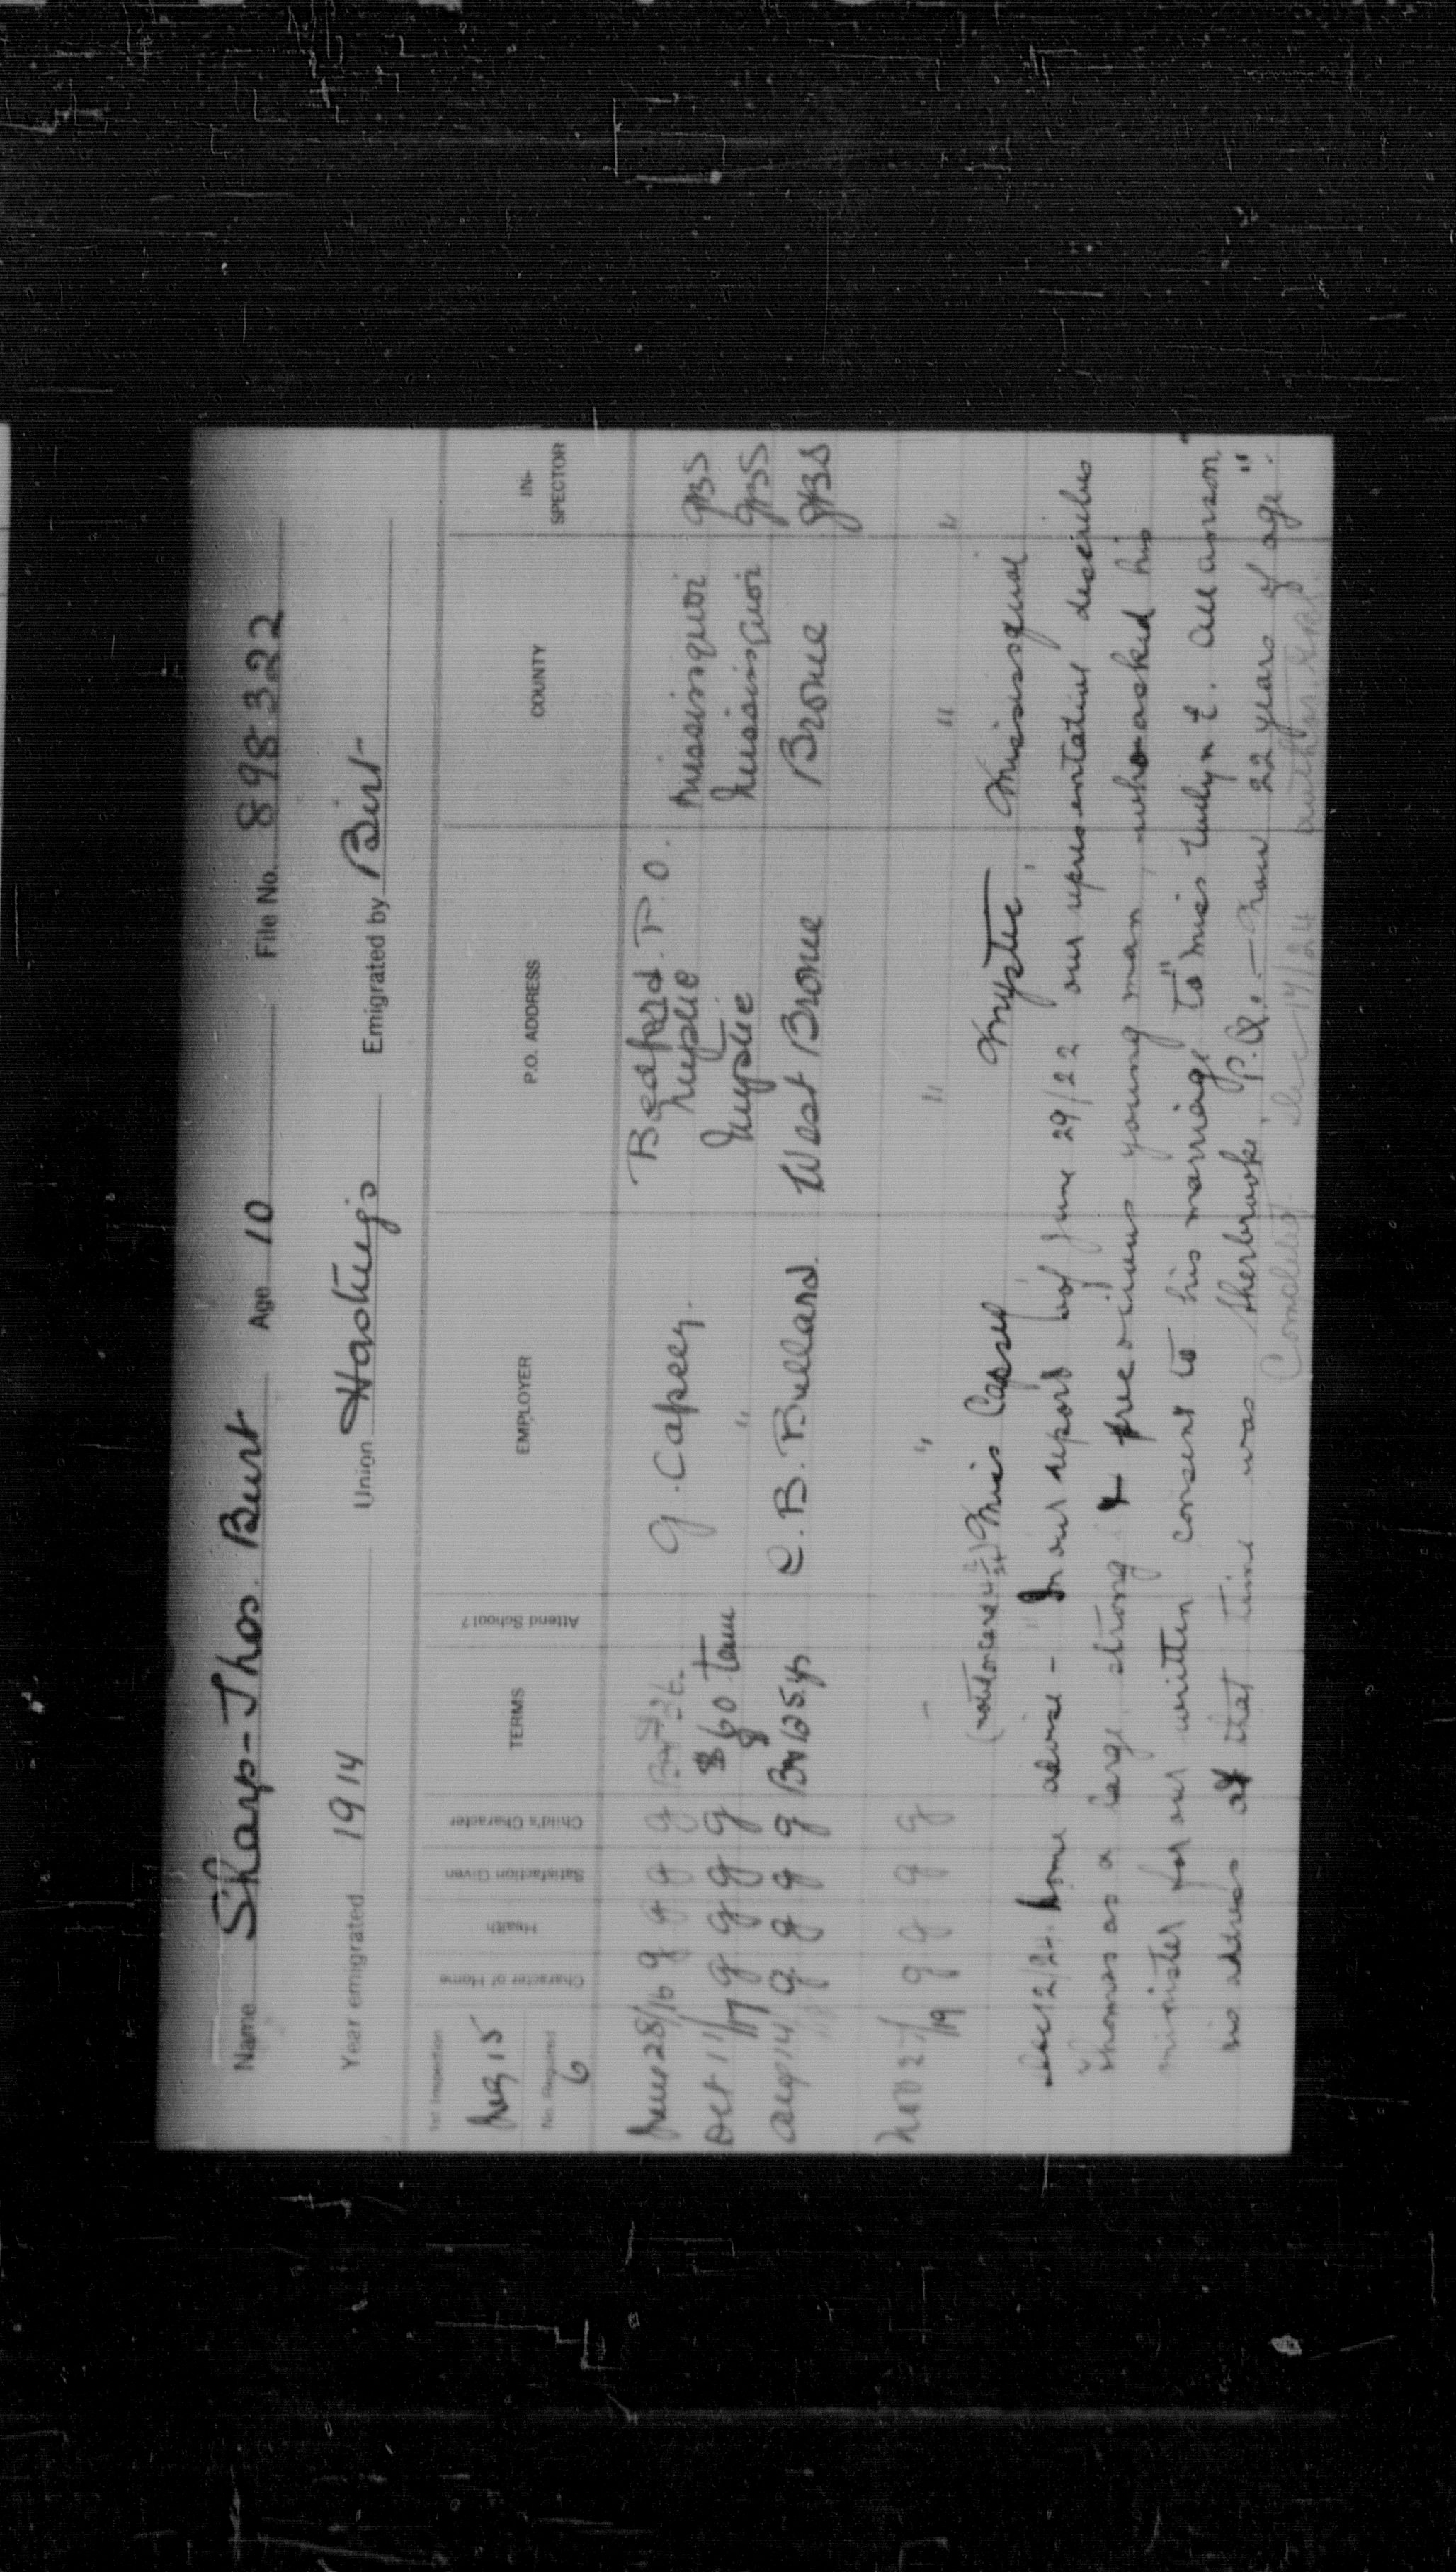 Name Sharp-Thos. Burt Age 10 File No. 898322
Year emigrated 1914 Union Hastings Emigrated by Birt-
1st Inspection Aug 15 No. Required 6 Character of Home Health Satisfaction Given Child's Character TERMS Attend School? EMPLOYER P.O. ADDRESS COUNTY IN-SPECTOR
28/16 g g g g G. Capsey. Bedford. P.O.
Mystic Missisquoi GBS
Oct 11/17 g g g g $60 " Mystic Missisquoi GBS
Aug 14/18 g g g g C. B. Bullard. West Brome Brome GBS
Nov 27/19 g g g g - " " " "
Miss Capsey Mystic, Missisquoi
Dec 12/24 Home advise - "In our report of June 29/22 our representative describes
Thomas as a large, strong & precocious young man, who asked his
minister for our written consent to his marriage to "Miss E. Allanson,"
his address at that time was Sherbrooke, P.Q. - Now 22 years of age".
Completed. Dec 17/24